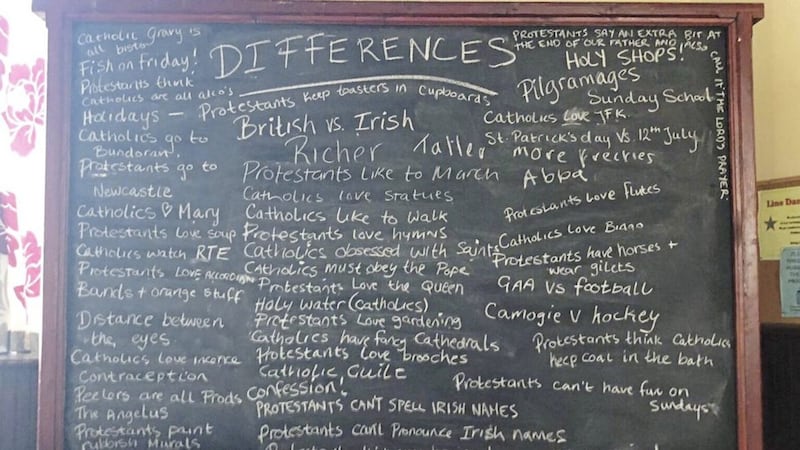 DIFFERENCES
Catholic Gravy is
all bisto
Fish on friday!
Protestants think
Catholics are all alco's
Holidays –
Catholics go to
Bundoran.
Protestants go to
Newcastle
Catholics ♡ Mary
Protestants love soup
Catholics watch RTE
Protestants LOVE ACCORDION
Bands + orange stuff
Distance between
the eyes
Catholics love incence
Contraception
Peelers are all Prods
The Angelus
Protestants paint
rubbish Murals
Protestants keep toasters in cupboards
British vs. Irish
Richer
Taller
Protestants like to March
Catholics love statues
Catholics like to walk
Protestants love hymns
Catholics obsessed with Saints
Catholics must obey the Pope
Protestants Love the Queen
Holy water (Catholics)
Protestants Love gardening
Catholics have fancy Cathedrals
Protestants love brooches
Catholic Guilt
Confession!
PROTESTANTS CANT SPELL IRISH NAMES
Protestants can't Pronounce Irish names
PROTESTANTS SAY AN EXTRA BIT AT
THE END OF OUR FATHER AND ALSO
CALL IT THE LORD'S PRAYER
HOLY SHOPS!
Pilgramages
Sunday School
Catholics Love JFK.
St. Patrick's day Vs. 12th July
more freckles
Abba
Protestants Love flutes
Catholics Love Bingo
Protestants have horses +
wear gilets
GAA VS football
Camogie V hockey
Protestants think Catholics
keep coal in the bath
Protestants can't have fun on
Sundays
Line Dan